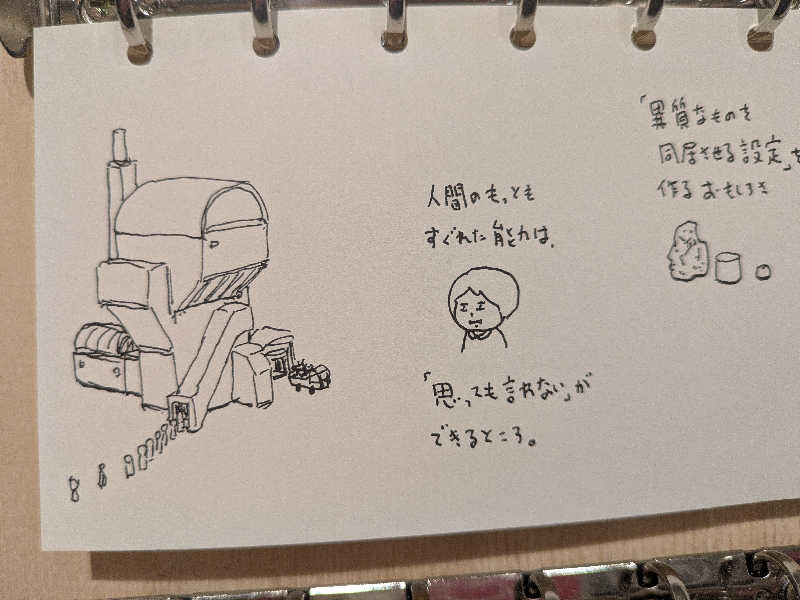 人間のもっとも
すぐれた能力は、
「思っても言わない」が
できるところ。
「異質なものを
同居させる設定」を
作るおもしろさ